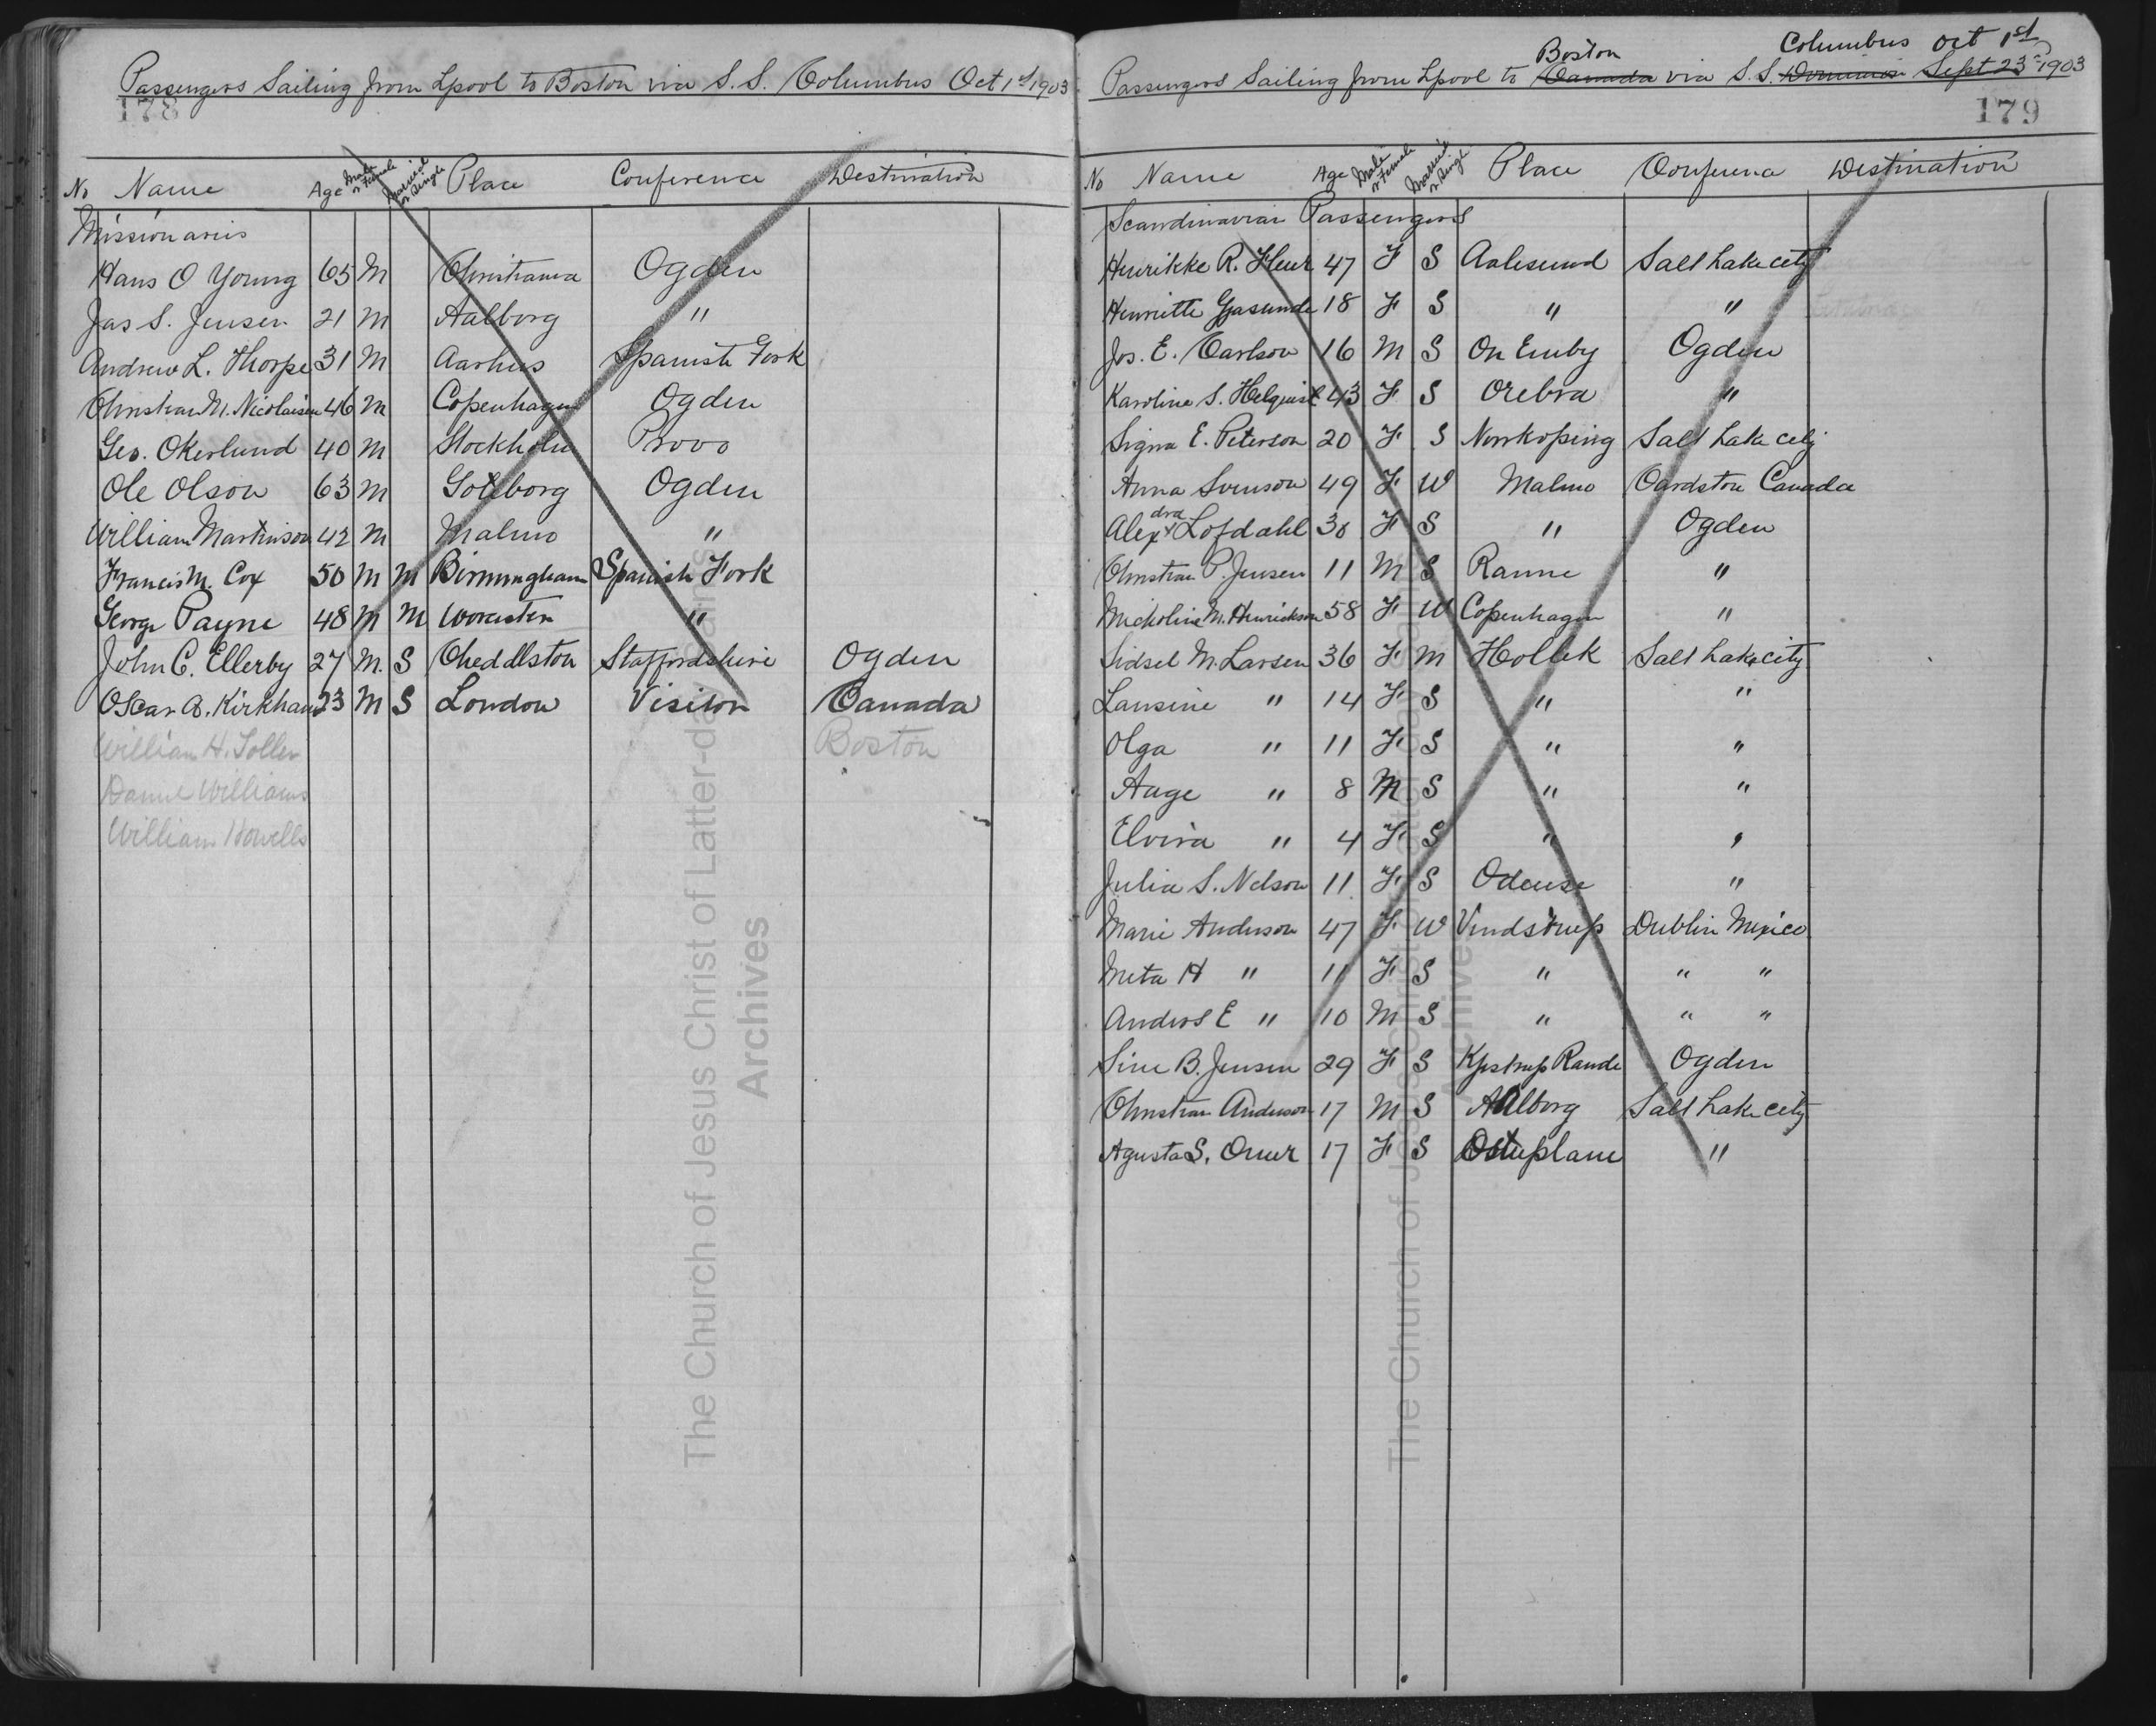 Passengers Sailing from Lpool to Boston via S.S. Columbus Oct 1st 1903
178
No Name Age Male or Female Married or Single Place Conference Destination
Missionaries
Hans O Young 65 M Christiania Ogden
Jas S. Jensen 21 M Aalborg "
Andrew L. Thorpe 31 M Aarhus Spanish Fork
Christian N. Nicolaisen 46 M Copenhagen Ogden
Geo. Okerlund 40 M Stockholm Provo
Ole Olson 63 M Goteborg Ogden
William Martinson 42 M Malmo "
Francis M. Cox 50 M M Birmingham Spanish Fork
George Payne 48 M M Worcester "
John C. Ellerby 27 M. S Cheddlston Staffordshire Ogden
Oscar A. Kirkham 23 M S London Visitor Canada
William H. Boston
Daniel Williams
William Howells
Boston Columbus Oct 1st
Passengers Sailing from Lpool to Canada via S.S. Dominion Sept 23rd 1903
179
No Name Age Male or Female Married or Single Place Conference Destination
Scandinavian Passengers
Henrikke R. Fleur 47 F S Aalesund Salt Lake City
Henriette 18 F S " "
Jos. E. Carlson 16 M S Ogden
Karoline S. Helquist 43 F S Orebra "
Signa E. Peterson 20 F S Norrkoping Salt Lake City
Anna Svenson 49 F W Malmo Cardston Canada
Alexdra Lofdahl 30 F S " Ogden
Christian P. Jensen 11 M S Ranne "
Nicholine N. Henrickson 58 F W Copenhagen "
Sidsel M. Larsen 36 F M Holbek Salt Lake City
Lausine " 14 F S " "
Olga " 11 F S " "
Auge " 8 M S " "
Elvira " 4 F S " "
Julia S. Nelson 11 F S Odense "
Marie Anderson 47 F W Vindstrup Dublin Mexico
Meta H " 11 F S " " "
Anders E " 10 M S " " "
Sine B. Jensen 29 F S Ogden
Christian Anderson 17 M S Aalborg Salt Lake City
Agusta S. 17 F S "
The Church of Jesus Christ of Latter-day Saints
Archives
The Church of Jesus Christ of Latter-day Saints
Archives